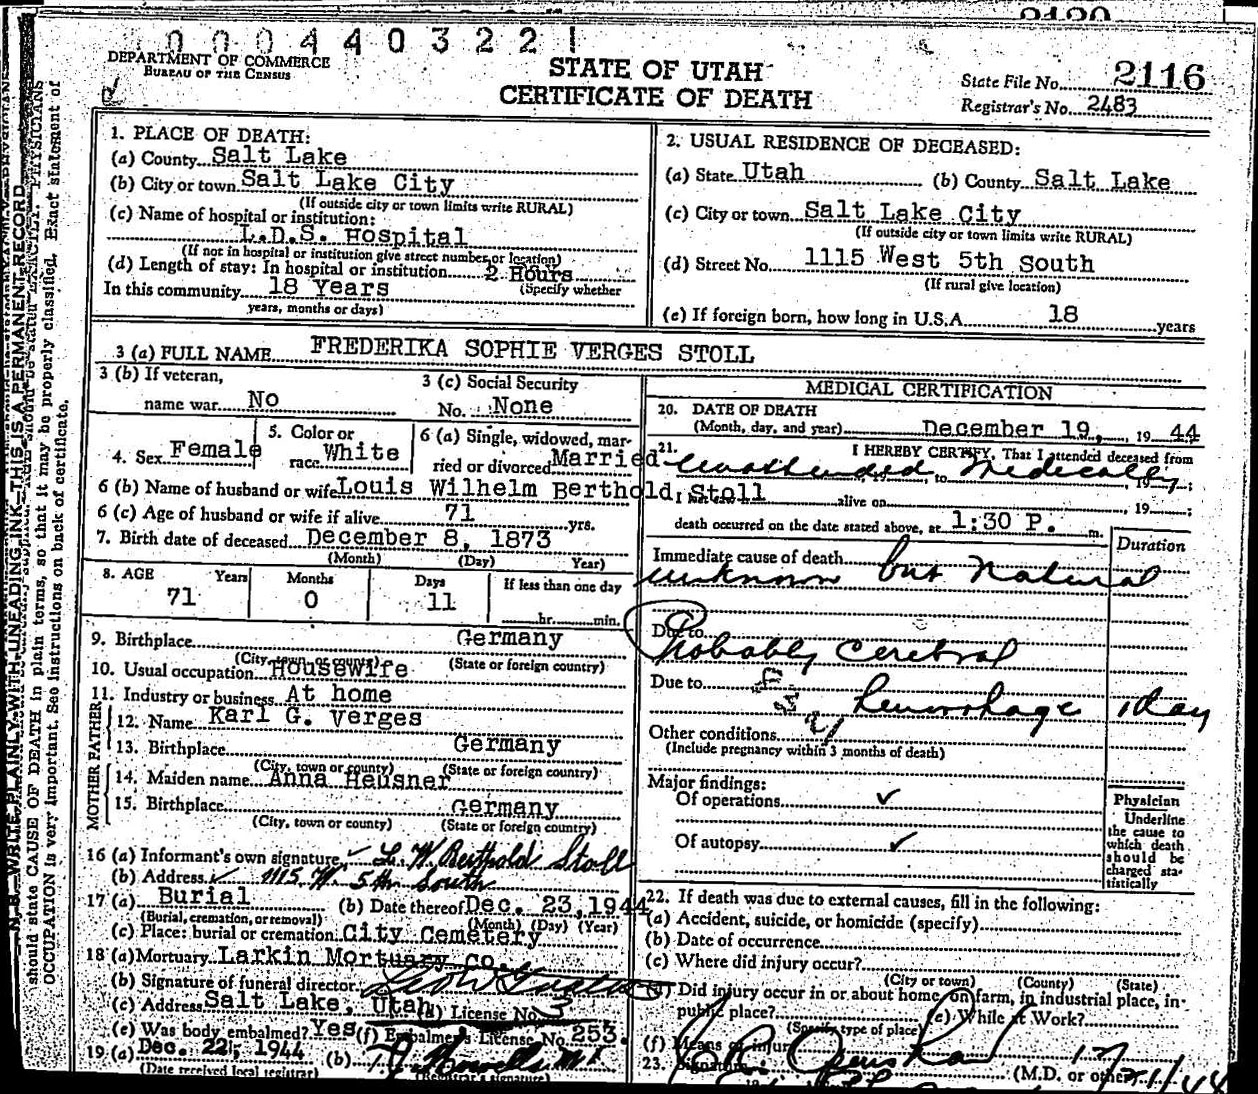 0004403221
DEPARTMENT OF COMMERCE
BUREAU OF THE CENSUS
STATE OF UTAH
CERTIFICATE OF DEATH
State File No. 2116
Registrar's No. 2483
N. B. WRITE PLAINLY WITH UNFADING INK THIS IS A PERMANENT RECORD
should state CAUSE OF DEATH in plain terms, so that it may be properly classified. Exact statement of
OCCUPATION is very important. See instructions on back of certificate.
1. PLACE OF DEATH:
(a) County Salt Lake
(b) City or town Salt Lake City
(If outside city or town limits write RURAL)
(c) Name of hospital or institution:
L.D.S. Hospital
(If not in hospital or institution give street number or location)
(d) Length of stay: In hospital or institution 2 Hours
In this community 18 Years (Specify whether
years, months or days)
2. USUAL RESIDENCE OF DECEASED:
(a) State Utah (b) County Salt Lake
(c) City or town Salt Lake City
(If outside city or town limits write RURAL)
(d) Street No. 1115 West 5th South
(If rural give location)
(e) If foreign born, how long in U.S.A. 18 years
3 (a) FULL NAME FREDERIKA SOPHIE VERGES STOLL
3 (b) If veteran,
name war No
3 (c) Social Security
No. None
4. Sex Female
5. Color or
race White
6 (a) Single, widowed, mar-
ried or divorced Married
6 (b) Name of husband or wife Louis Wilhelm Berthold Stoll
6 (c) Age of husband or wife if alive 71 yrs.
7. Birth date of deceased December 8, 1873
(Month) (Day) Year)
8. AGE Years Months Days If less than one day
71 0 11 hr. min.
9. Birthplace Germany
(City, town or county) (State or foreign country)
10. Usual occupation Housewife
11. Industry or business At home
FATHER
12. Name Karl G. Verges
13. Birthplace Germany
(City, town or county) (State or foreign country)
MOTHER
14. Maiden name Anna Heusner
15. Birthplace Germany
(City, town or county) (State or foreign country)
16 (a) Informant's own signature L. W. Berthold Stoll
(b) Address 1115 W. 5th South
17 (a) Burial (b) Date thereof Dec. 23, 1944
(Burial, cremation, or removal) (Month) (Day) (Year)
(c) Place: burial or cremation City Cemetery
18 (a) Mortuary Larkin Mortuary Co.
(b) Signature of funeral director
(c) Address Salt Lake, Utah (d) License No. 3
(e) Was body embalmed? Yes (f) Embalmer's License No. 253.
19 (a) Dec. 22, 1944 (b)
(Date received local registrar) (Registrar's signature)
MEDICAL CERTIFICATION
20. DATE OF DEATH
(Month, day, and year) December 19, 19 44
21. I HEREBY CERTIFY, That I attended deceased from
unattended, to Medically, 19 ;
alive on , 19 ;
death occurred on the date stated above, at 1:30 P. m.
Duration
Immediate cause of death
unknown but Natural
Due to
Probably Cerebral
Due to
hemorhage 1 day
Other conditions
(Include pregnancy within 3 months of death)
Major findings:
Of operations ✓
Of autopsy ✓
Physician
Underline
the cause to
which death
should be
charged sta-
tistically
22. If death was due to external causes, fill in the following:
(a) Accident, suicide, or homicide (specify)
(b) Date of occurrence
(c) Where did injury occur?
(City or town) (County) (State)
(d) Did injury occur in or about home, on farm, in industrial place, in
public place? (e) While at Work?
(Specify type of place)
(f) Means of injury
23. Signature (M.D. or other) 12/21/44